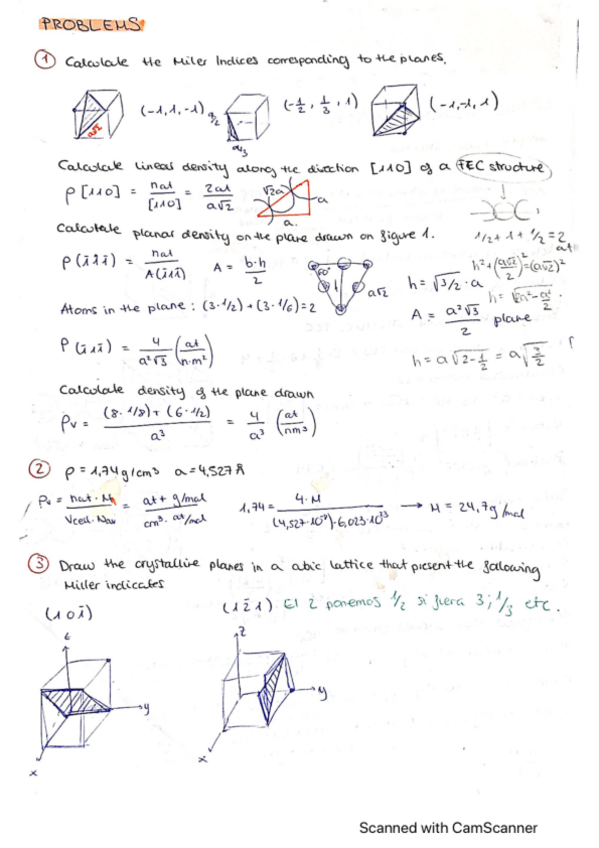 PROBLEMS
① Calculate the Miler Indices corresponding to the planes.
(-1,1,-1) (-1/2, 1/3, 1) (-1,-1,1)
a√2
a/2
a/3
Calculate lineal density along the direction [110] of a FEC structure
ρ[110] = nat/[110] = 2at/a√2
√2a
a
a.
1/2+1+1/2=2 at
Calculate planar density on the plane drawn on figure 1.
ρ(ī1ī) = nat/A(ī1ī) A = b·h/2
60°
a√2
h²+(a√2/2)²=(a√2)²
h = √3/2·a
Atoms in the plane: (3·1/2)+(3·1/6)=2
A = a²√3/2 plane
ρ(ī1ī) = 4/a²√3 (at/n·m²)
h = a√2-1/2 = a√3/2
Calculate density of the plane drawn
ρv = (8·1/8)+(6·1/2)/a³ = 4/a³ (at/nm³)
② ρ = 1,74g/cm³ a = 4,527 Å
ρv = nat·M/Vcell·Nav = at+g/mol/cm³·at/mol 1,74 = 4·M/(4,527·10⁻⁹)·6,023·10²³ → M = 24,7g/mol
③ Draw the crystalline planes in a abic lattice that present the following
Miller indicates
(10ī) (12̄1). El 2 ponemos 1/2 si fuera 3; 1/3 etc.
z
y
x
z
y
x
Scanned with CamScanner